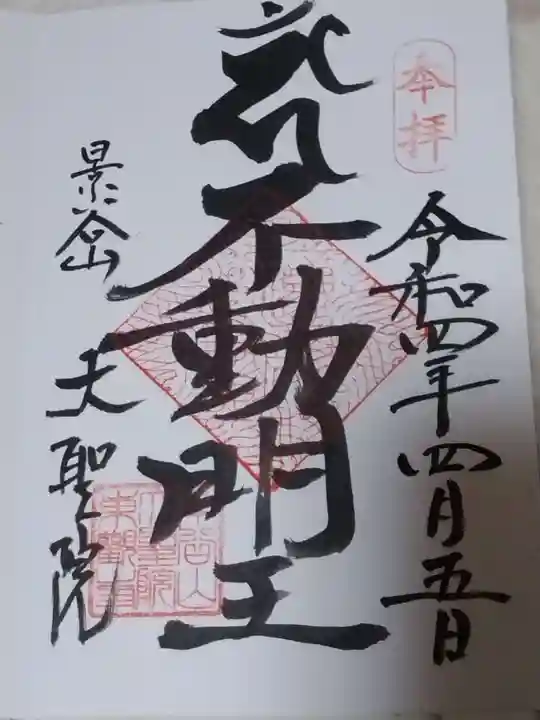 本拝
令和四年四月五日
不動明王
景谷山
大聖院